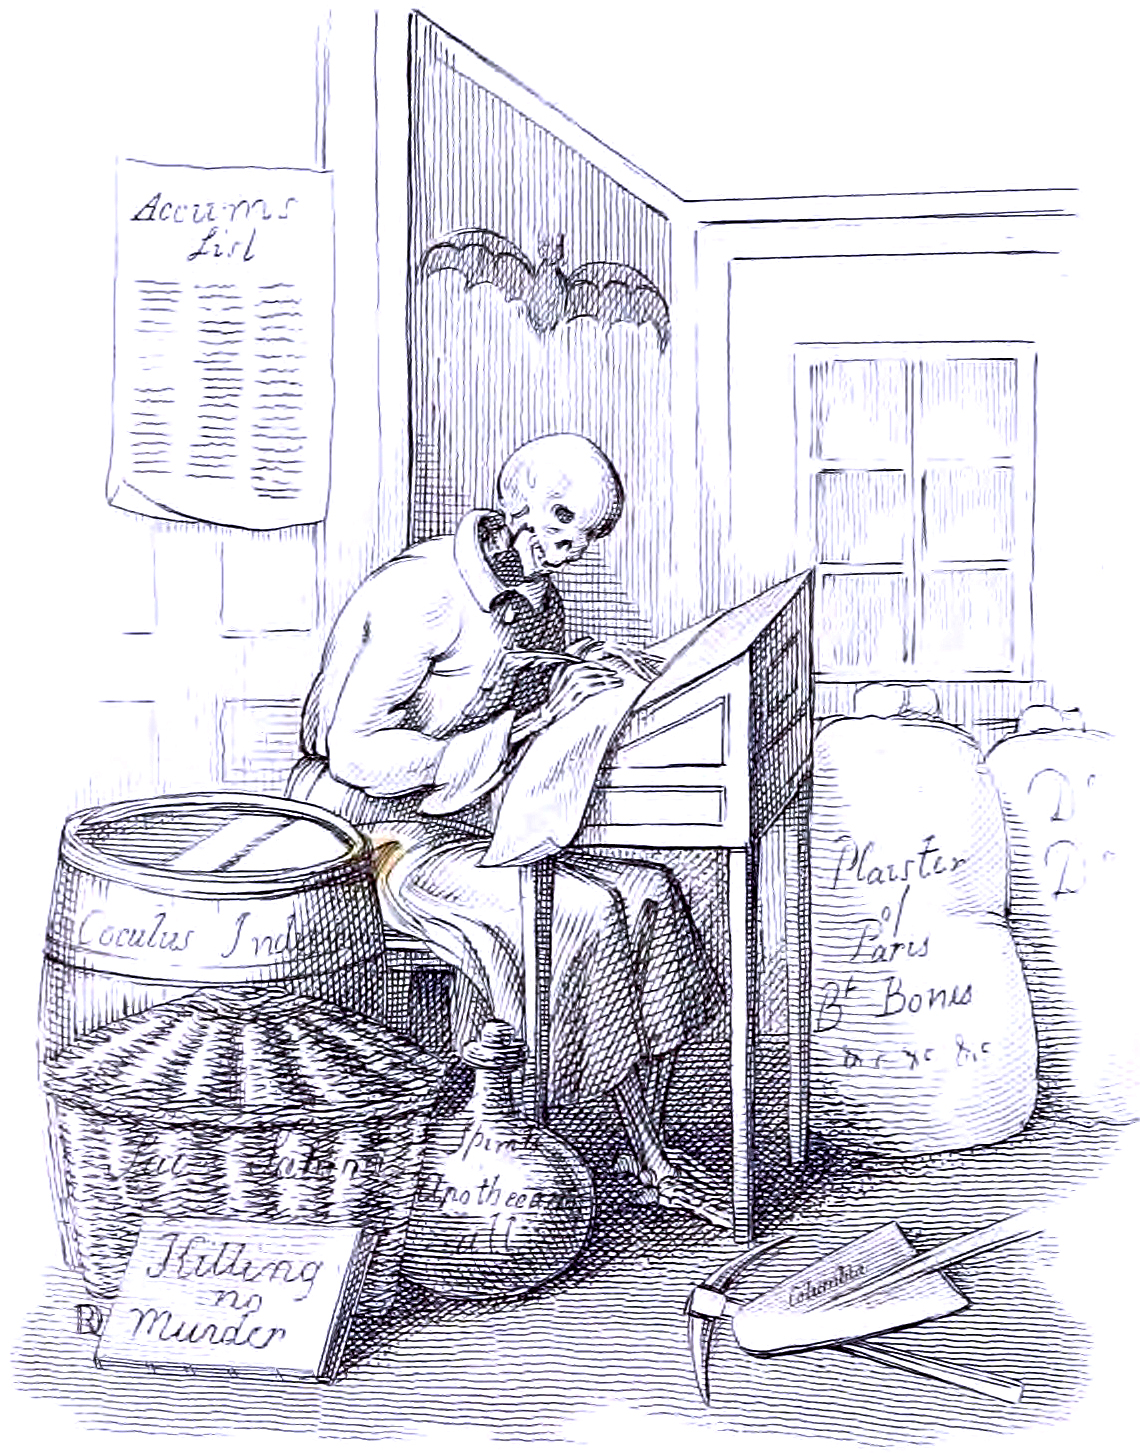 Accums
List
Coculus Ind
Plaister
of
Paris
Bt Bones
&c &c &c
Dº
Dº
Apothecar
all
Killing
no
Murder
Columbia